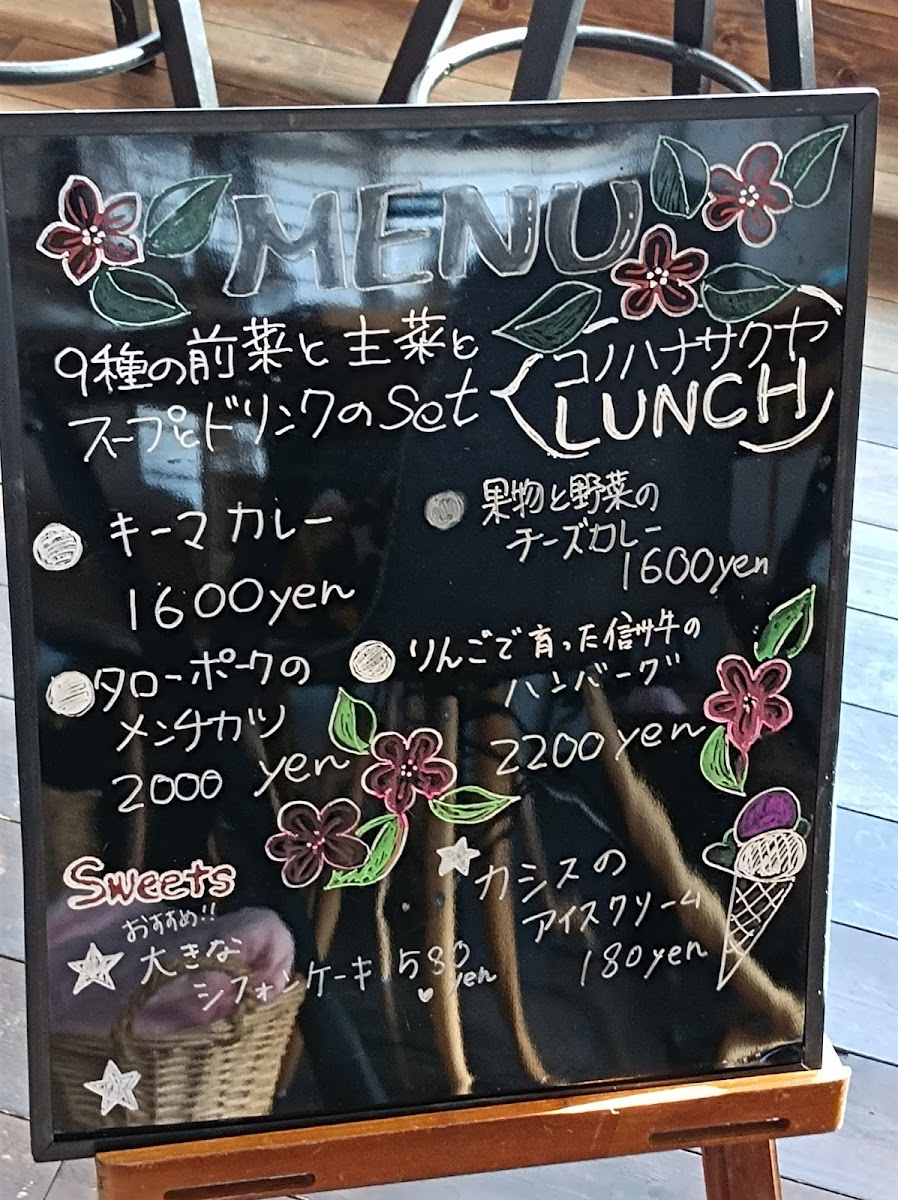 MENU
9種の前菜と主菜と
スープとドリンクのset
コノハナサクヤ
LUNCH
キーマカレー
1600yen
果物と野菜の
チーズカレー
1600yen
タローポークの
メンチカツ
2000 yen
りんごで育った信サ牛の
ハンバーグ
2200yen
Sweets
おすすめ!!
大きな
シフォンケーキ 580
yen
カシスの
アイスクリーム
180yen